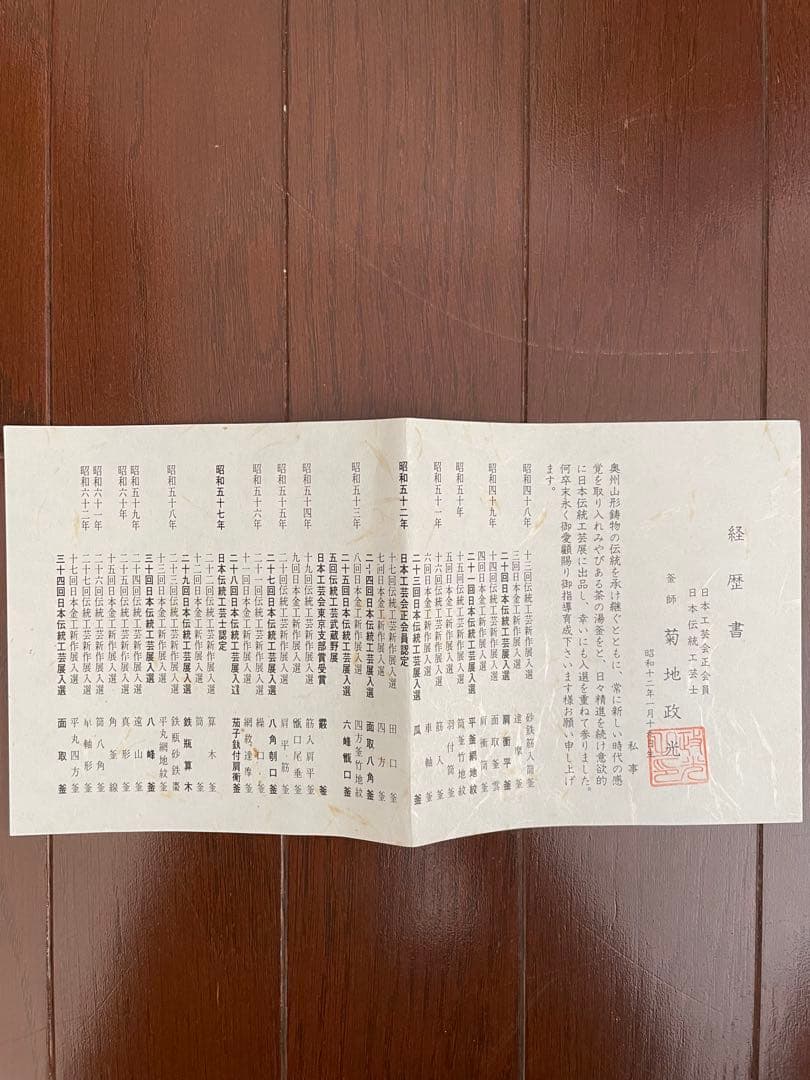 経歴書
日本工芸会正会員
日本伝統工芸士
釜師 菊地政光
昭和十二年一月十 日生
私事
奥州山形鋳物の伝統を承け継ぐとともに、常に新しい時代の感
覚を取り入れみやびある茶の湯釜をと、日々精進を続け意欲的
に日本伝統工芸展に出品し、幸いにも入選を重ねて参りました。
何卒末永く御愛顧賜り御指導育成下さいます様お願い申し上げ
ます。
昭和四十八年 十三回伝統工芸新作展入選 砂鉄筋入筒釜
三回日本金工新作展入選 達摩釜
二十回日本伝統工芸展入選 肩衝平釜
昭和四十九年 十四回伝統工芸新作展入選 面取釜雲
四回日本金工新作展入選 肩衝筒釜
二十一回日本伝統工芸展入選 平釜網地紋
昭和五十年 十五回伝統工芸新作展入選 筒釜竹地紋
五回日本金工新作展入選 羽付筒釜
昭和五十一年 十六回伝統工芸新作展入選 筋入釜
六回日本金工新作展入選 車軸釜
二十三回日本伝統工芸展入選 瓢釜
昭和五十二年 日本工芸会正会員認定
十七回伝統工芸新作展入選 田口釜
七回日本金工新作展入選 四方釜
二十四回日本伝統工芸展入選 面取八角釜
昭和五十三年 八回日本金工新作展入選 四方釜竹地紋
二十五回日本伝統工芸展入選 六峰甑口釜
五回伝統工芸武蔵野展
日本工芸会東京支部賞受賞 霰釜
昭和五十四年 十九回伝統工芸新作展入選 筋入肩平釜
九回日本金工新作展入選 甑口尾垂釜
昭和五十五年 二十回伝統工芸新作展入選 肩平筋釜
二十七回日本伝統工芸展入選 八角朝口釜
昭和五十六年 二十一回伝統工芸新作展入選 繰口釜
十一回日本金工新作展入選 網紋達摩釜
二十八回日本伝統工芸展入選 茄子鈇付肩衝釜
昭和五十七年 日本伝統工芸士認定
二十二回伝統工芸新作展入選 算木釜
十二回日本金工新作展入選 筒釜
二十九回日本伝統工芸展入選 鉄瓶算木
昭和五十八年 二十三回伝統工芸新作展入選 鉄瓶砂鉄棗
十三回日本金工新作展入選 平丸網地紋釜
三十回日本伝統工芸展入選 八峰釜
昭和五十九年 二十四回伝統工芸新作展入選 遠山釜
十五回日本金工新作展入選 角釜線
昭和六十年 二十五回伝統工芸新作展入選 真形釜
昭和六十一年 二十六回伝統工芸新作展入選 筒八角釜
二十七回伝統工芸新作展入選 車軸形釜
昭和六十二年 十七回日本金工新作展入選 平丸四方釜
三十四回日本伝統工芸展入選 面取釜